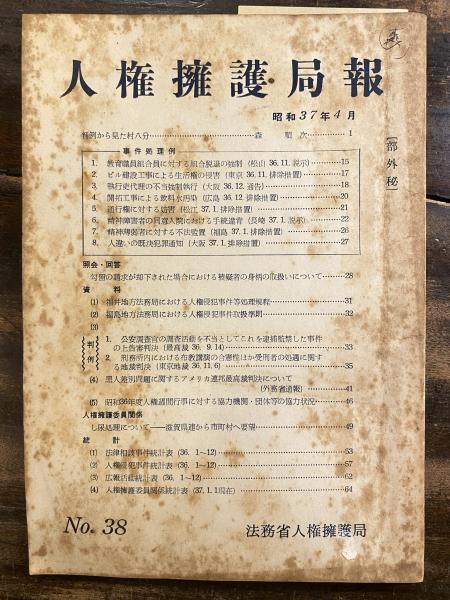 人権擁護局報
昭和37年4月
〔部外秘〕
判例から見た村八分……………森 順次…1
事件処理例
1. 教育職員組合員に対する組合脱退の強制（松山 36.11.説示）……15
2. ビル建設工事による生活権の侵害（東京 36.11.排除措置）……17
3. 執行吏代理の不当強制執行（大阪 36.12.通告）……18
4. 開拓工事による飲料水汚染（広島 36.12.排除措置）……20
5. 通行権に対する妨害（松江 37.1.排除措置）……21
6. 精神障害者の同意入院における手続違背（長崎 37.1.説示）……22
7. 精神薄弱者に対する不法監置（福島 37.1.排除措置）……26
8. 人違いの既決犯罪通知（大阪 37.1.排除措置）……27
照会・回答
勾留の請求が却下された場合における被疑者の身柄の取扱いについて……28
資料
(1) 福井地方法務局における人権侵犯事件等処理規程……31
(2) 福島地方法務局における人権侵犯事件取扱準則……32
(3)
判例
1. 公安調査官の調査活動を不当としてこれを逮捕監禁した事件
の上告審判決（最高裁 36. 9.14）……33
2. 刑務所内における布教講演の合憲性ほか受刑者の処遇に関す
る地裁判決（東京地裁 36.11.6）……35
(4) 黒人差別問題に関するアメリカ連邦最高裁判決について
（外務省通報）……41
(5) 昭和36年度人権週間行事に対する協力機関・団体等の協力状況……46
人権擁護委員関係
し尿処理について――滋賀県連から市町村へ要望……49
統計
(1) 法律相談事件統計表（36. 1～12）……53
(2) 人権侵犯事件統計表（36. 1～12）……57
(3) 広報活動統計表（36. 1～12）……62
(4) 人権擁護委員関係統計表（37.1.1現在）……64
No. 38
法務省人権擁護局